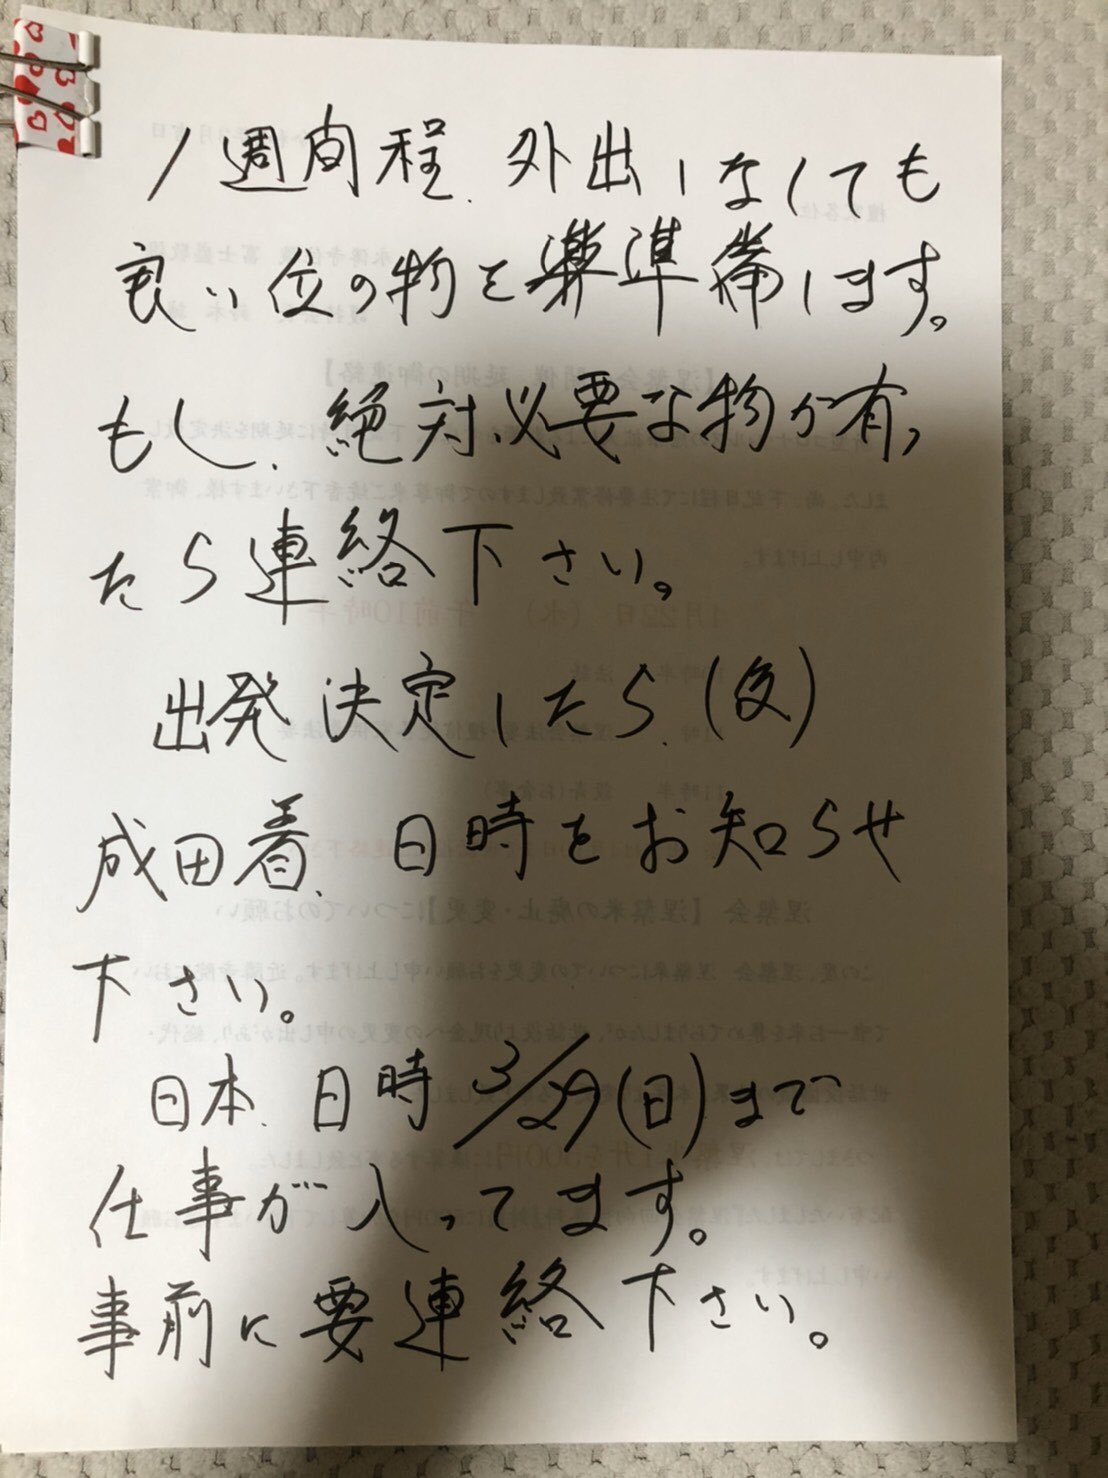 1週間程、外出しなくても
良い位の物を準備します。
もし、絶対必要な物が有っ
たら連絡下さい。
出発決定したら、(仮)
成田着、日時をお知らせ
下さい。
日本、日時3/29(日)まで
仕事が入ってます。
事前に要連絡下さい。